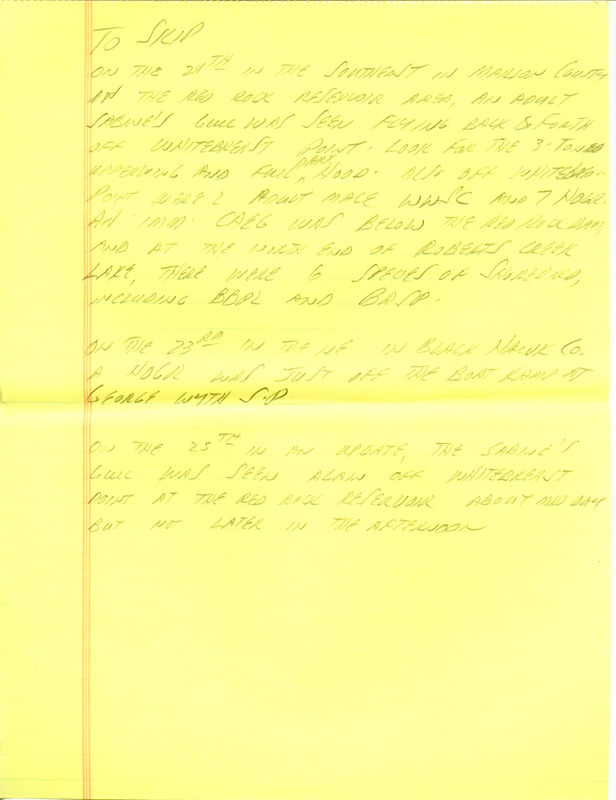 TO SKIP
ON THE 24TH IN THE SOUTHEAST IN MARION COUNTY
IN THE RED ROCK RESERVOIR AREA, AN ADULT
SABINE'S GULL WAS SEEN FLYING BACK & FORTH
OFF WHITEBREAST POINT. LOOK FOR THE 3-TONED
UPPERWING AND FULL DARK HOOD. ALSO OFF WHITEBREAST
POINT WERE 2 ADULT MALE WWSC AND 7 HOGR.
AN IMM. CAEG WAS BELOW THE RED ROCK DAM,
AND AT THE NORTH END OF ROBERTS CREEK
LAKE, THERE WERE 6 SPECIES OF SHOREBIRD,
INCLUDING BBPL AND BASP.
ON THE 23RD IN THE NE IN BLACK HAWK CO.
A HOGR WAS JUST OFF THE BOAT RAMP AT
GEORGE WYTH S.P
ON THE 25TH IN AN UPDATE, THE SABINE'S
GULL WAS SEEN AGAIN OFF WHITEBREAST
POINT AT THE RED ROCK RESERVOIR ABOUT MID DAY
BUT NOT LATER IN THE AFTERNOON